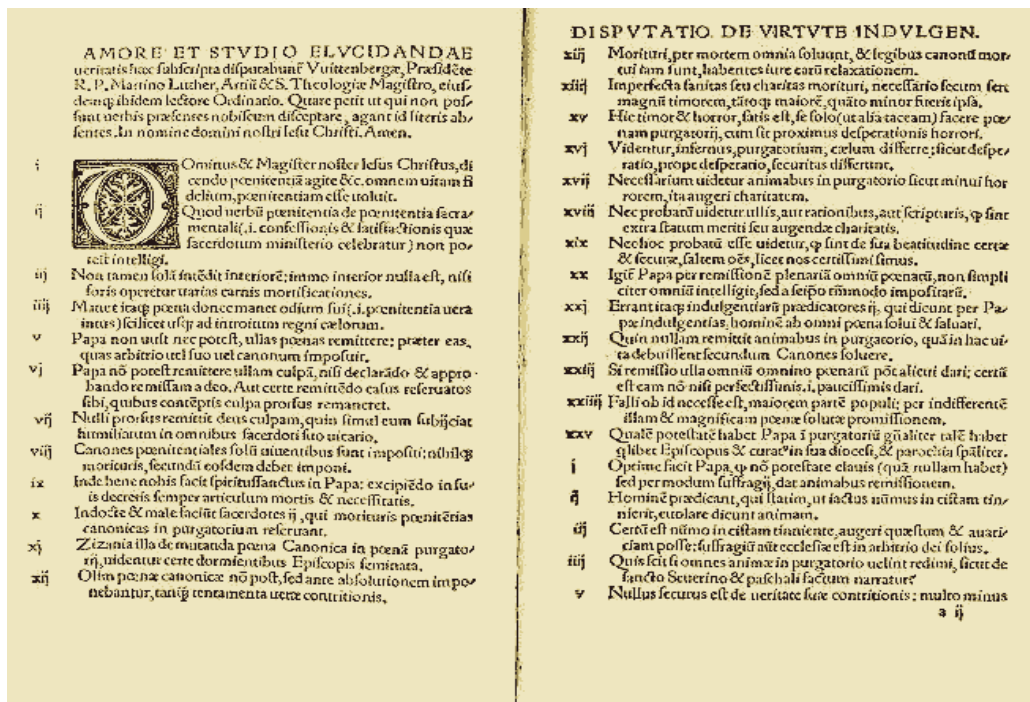 AMORE ET STVDIO ELVCIDANDAE
ueritatis hæc subscripta disputabunt̃ Vuittenbergæ, Præsidẽte
R. P. Martino Luther, Artiũ & S. Theologiæ Magistro, eius-
demq; ibidem lectore Ordinario. Quare petit ut qui non pos-
sunt uerbis præsentes nobiscum disceptare, agant id literis ab-
sentes. In nomine domini nostri Iesu Christi. Amen.
i DOminus & Magister noster Iesus Christus, di
cendo pœnitentiã agite &c. omnem uitam fi
delium, pœnitentiam esse uoluit.
ij Quod uerbũ pœnitentia de pœnitentia sacra-
mentali (.i. confessionis & satisfactionis quæ
sacerdotum ministerio celebratur) non po-
test intelligi.
iij Non tamen solã intẽdit interiorẽ: immo interior nulla est, nisi
foris operetur uarias carnis mortificationes.
iiij Manet itaq; pœna donec manet odium sui (.i. pœnitentia uera
intus) scilicet usq; ad introitum regni cælorum.
v Papa non uult nec potest, ullas pœnas remittere: præter eas,
quas arbitrio uel suo uel canonum imposuit.
vj Papa nõ potest remittere ullam culpã, nisi declarãdo & appro-
bando remissam a deo. Aut certe remittẽdo casus reseruatos
sibi, quibus contẽptis culpa prorsus remaneret.
vij Nulli prorsus remittit deus culpam, quin simul eum subijciat
humiliatum in omnibus sacerdoti suo uicario.
viij Canones pœnitentiales solũ uiuentibus sunt impositi: nihilq;
morituris, secundũ eosdem debet imponi.
ix Inde bene nobis facit spiritussanctus in Papa: excipiẽdo in su-
is decretis semper articulum mortis & necessitatis.
x Indocte & male faciũt sacerdotes ij, qui morituris pœnitẽtias
canonicas in purgatorium reseruant.
xj Zizania illa de mutanda pœna Canonica in pœnã purgato-
rij, uidentur certe dormientibus Episcopis seminata.
xij Olim pœnæ canonicæ nõ post, sed ante absolutionem impo-
nebantur, tanq̃ tentamenta ueræ contritionis.
DISPVTATIO DE VIRTVTE INDVLGEN.
xiij Morituri, per mortem omnia soluunt, & legibus canonũ mor-
tui iam sunt, habentes iure earũ relaxationem.
xiiij Imperfecta sanitas seu charitas morituri, necessario secum fert
magnũ timorem, tãtoq; maiorẽ, quãto minor fuerit ipsa.
xv Hic timor & horror, satis est, se solo (ut alia taceam) facere pœ-
nam purgatorij, cum sit proximus desperationis horrori.
xvj Videntur, infernus, purgatorium, cælum differre: sicut despe-
ratio, prope desperatio, securitas differunt.
xvij Necessarium uidetur animabus in purgatorio sicut minui hor
rorem, ita augeri charitatem.
xviij Nec probatũ uidetur ullis, aut rationibus, aut scripturis, ꝙ sint
extra statum meriti seu augendæ charitatis.
xix Nec hoc probatũ esse uidetur, ꝙ sint de sua beatitudine certæ
& securæ, saltem oẽs, licet nos certissimi simus.
xx Igit̃ Papa per remissionẽ plenariã omniũ pœnarũ, non simpli
citer omniũ intelligit, sed a seipo tm̃modo impositarũ.
xxj Errant itaq; indulgentiarũ prædicatores ij, qui dicunt per Pa-
pæ indulgentias, hominẽ ab omni pœna solui & saluari.
xxij Quin nullam remittit animabus in purgatorio, quã in hac ui-
ta debuissent secundum Canones soluere.
xxiij Si remissio ulla omniũ omnino pœnarũ põt alicui dari; certũ
est eam nõ nisi perfectissimis .i. paucissimis dari.
xxiiij Falli ob id necesse est, maiorem partẽ populi: per indifferentẽ
illam & magnificam pœnæ solutæ promissionem.
xxv Qualẽ potestatẽ habet Papa ĩ purgatoriũ gñaliter talẽ habet
q̃libet Episcopus & curat9 in sua diocesi, & parochia sp̃aliter.
j Optime facit Papa, ꝙ nõ potestate clauis (quã nullam habet)
sed per modum suffragij, dat animabus remissionem.
ij Hominẽ prædicant, qui statim, ut iactus nũmus in cistam tin-
nierit, euolare dicunt animam.
iij Certũ est nũmo in cistam tinniente, augeri quæstum & auari-
ciam posse: suffragiũ aũt ecclesiæ est in arbitrio dei solius.
iiij Quis scit si omnes animæ in purgatorio uelint redimi, sicut de
sancto Seuerino & paschali factum narratur?
v Nullus securus est de ueritate suæ contritionis: multo minus
a ij